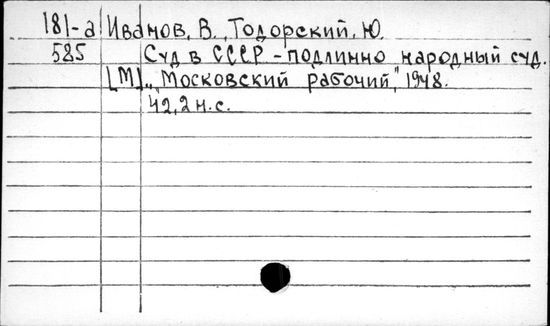 181-а Иванов, В., Тодорский, Ю.
585 Суд в СССР - подлинно народный суд.
[М], "Московский рабочий", 1948.
42, 2 н. с.